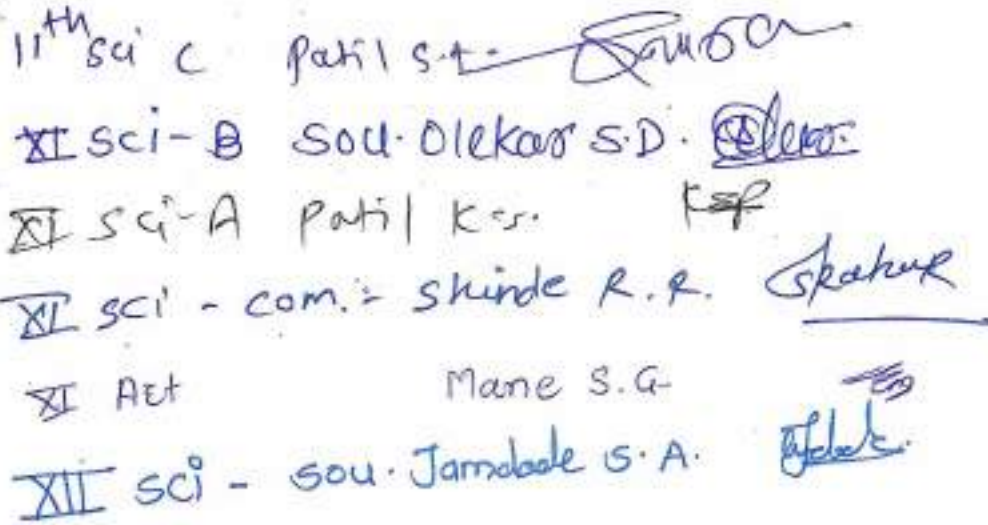 11th sci C Patil S.t.
XI Sci-B Sou. Olekar S.D.
XI Sci-A Patil K.S. KSP
XI sci - com. :- Shinde R.R.
XI Art Mane S.G
XII Sci - Sou. Jamdade S.A.